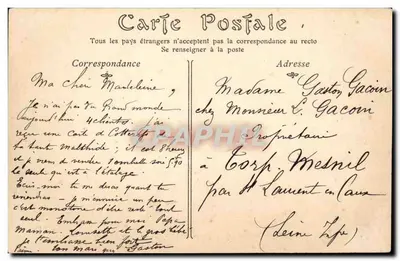 Carte Postale
Tous les pays étrangers n'acceptent pas la correspondance au recto
Se renseigner à la poste
Correspondance
Ma chère Madeleine,
Je n'ai pas du Grand monde
aujourd'hui 4 clients. J'ai
reçu une Carte de
ta tante Mathilde; il est 8 heures
et je viens de vendre 1 ombrelle
le seul qui est à l'étalage
Ecris-moi tu me diras quand tu
viendras - je m'ennuie un peu
c'est monotone d'être resté tout
seul. Embrasse pour moi Papa
Maman, Loulette et le gros bébé
je t'embrasse bien fort
Ton mari qui
Gaston
Adresse
Madame Gaston Gacoin
chez Monsieur L. Gacoin
Propriétaire
à Torp. Mesnil
par St Laurent en Caux
(Seine Infre)